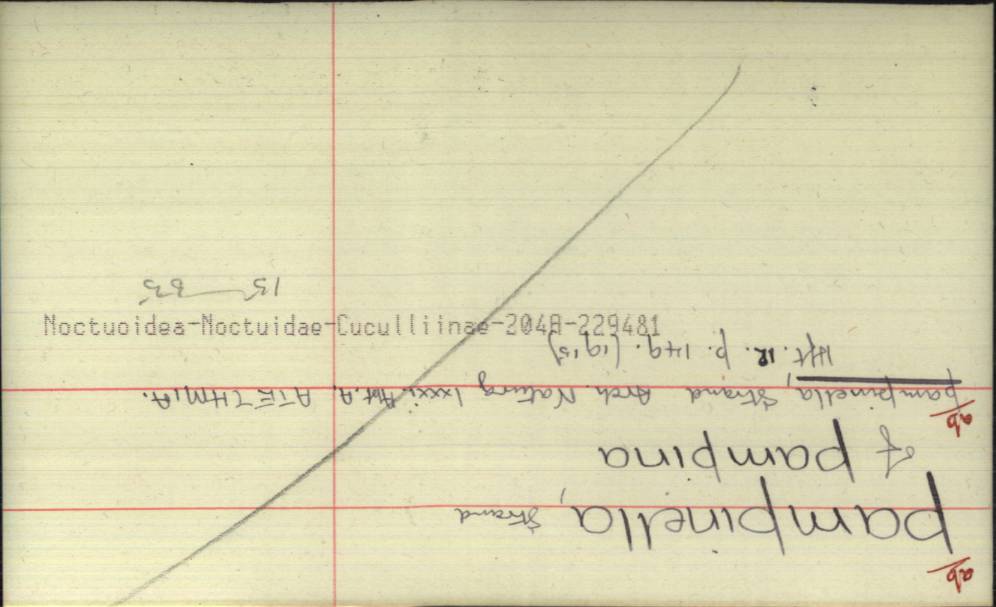 ab
pampinella, Strand
of pampina
ab
pampinella, Strand Arch. Naturg lxxxi. Abt. A.
Hft. 12. p. 149. (1915)
15 B5
Noctuoidea-Noctuidae-Cuculliinae-2048-229481